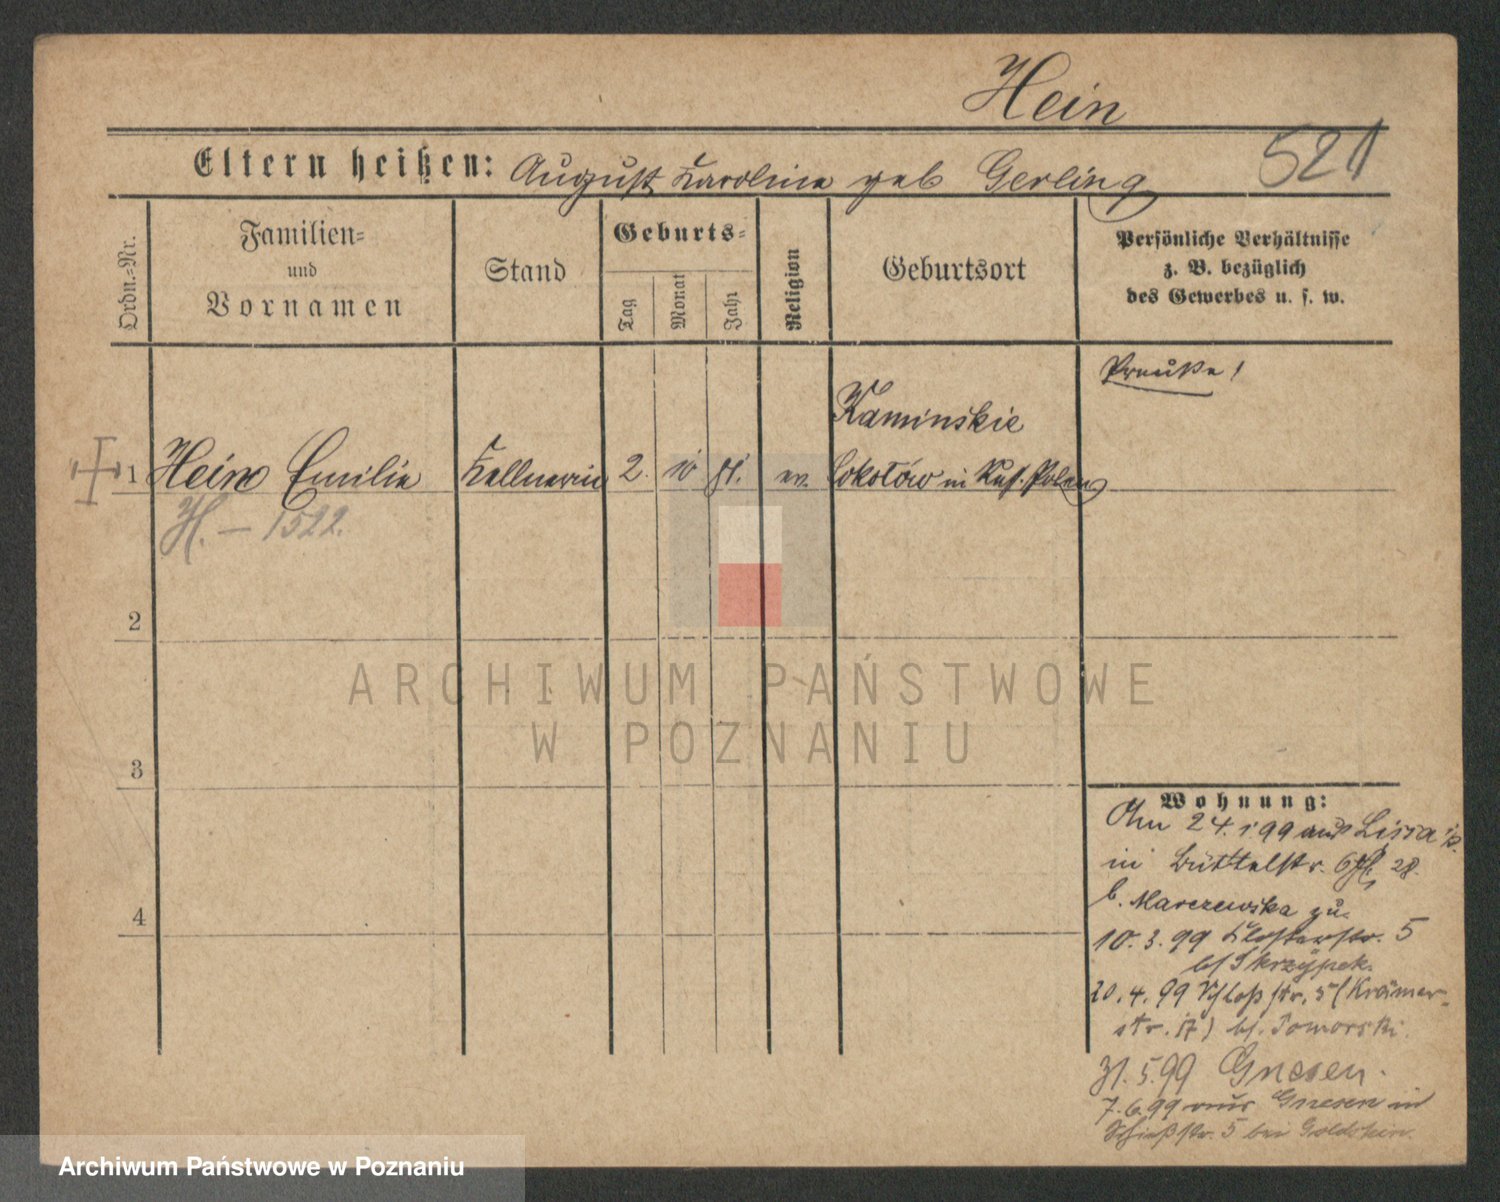 Hein
521
Eltern heißen: August Karoline geb Gerling
Ordn.=Nr.
Familien=
und
Vornamen
Stand
Geburts=
Tag
Monat
Jahr
Religion
Geburtsort
Persönliche Verhältnisse
z. B. bezüglich
des Gewerbes u. s. w.
Preuße!
Kaminskie
1 Hein Emilie Kellnerin 2. 10 81. ev. Sokołów in Rus. Polen
H. — 1522.
2
ARCHIWUM PAŃSTWOWE
W POZNANIU
3
Wohnung:
24. 1. 99 aus Lissa i/P.
in Büttelstr. 28.
b. Marczewska zu.
10. 3. 99 Klosterstr. 5
b/ Skrzypek.
4
20. 4. 99 Schloßstr. 5 (Krämer-
str. 17) b/. Pomorski.
31. 5. 99 Gnesen.
7. 6. 99 aus Gnesen in
Schießstr. 5 bei Goldstein.
Archiwum Państwowe w Poznaniu